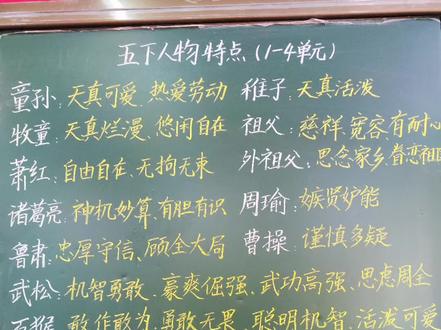 五下人物特点(1-4单元)
童孙:天真可爱、热爱劳动 稚子:天真活泼
牧童:天真烂漫、悠闲自在 祖父:慈祥、宽容、有耐心
萧红:自由自在、无拘无束 外祖父:思念家乡、眷恋祖
诸葛亮:神机妙算、有胆有识 周瑜:嫉贤妒能
鲁肃:忠厚守信、顾全大局 曹操:谨慎多疑
武松:机智勇敢、豪爽倔强、武功高强、思虑周全
石猴:敢作敢为、勇敢无畏、聪明机智、活泼可爱